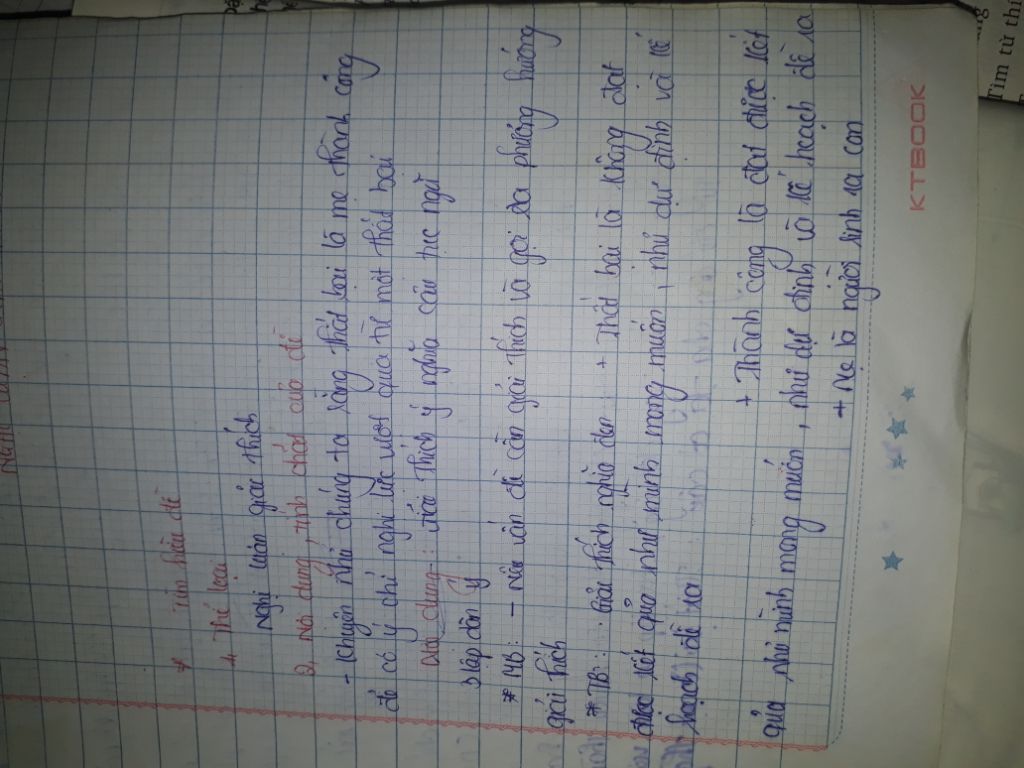 * Tìm hiểu đề
1, Thể loại
Nghị luận giải thích
2, Nội dung, tính chất của đề
- Khuyên nhủ chúng ta rằng thất bại là mẹ thành công
để có ý chí nghị lực vượt qua từ một thất bại
: Giải thích ý nghĩa câu tục ngữ
3 lập dàn ý
* MB: - nêu vấn đề cần giải thích và gợi ra phương hướng
giải thích
* TB: . Giải thích nghĩa đen + Thất bại là không đạt
được kết quả như mình mong muốn, như dự định và kế
hoạch đề ra
+ Thành công là đạt được kết
quả như mình mong muốn, như dự định và kế hoạch đề ra
+ Mẹ là người sinh ra con
KTBOOK
Tìm từ thí